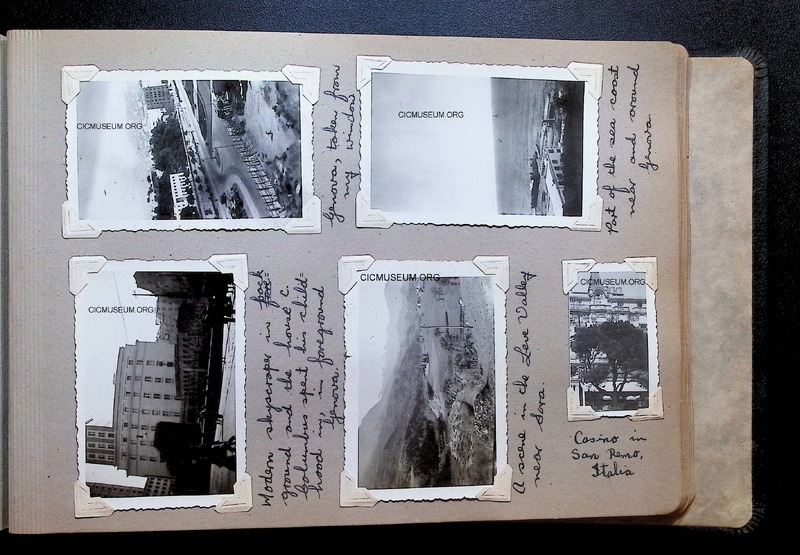 CICMUSEUM.ORG
Genova, taken from
my window
CICMUSEUM.ORG
Part of the sea coast
near and around
Genova.
CICMUSEUM.ORG
Modern skyscraper in back
ground and the house C.
Columbus spent his child=
hood in, in foreground
Genova.
CICMUSEUM.ORG
A scene in the Leve Valley
near Sora.
CICMUSEUM.ORG
Casino in
San Remo,
Italia